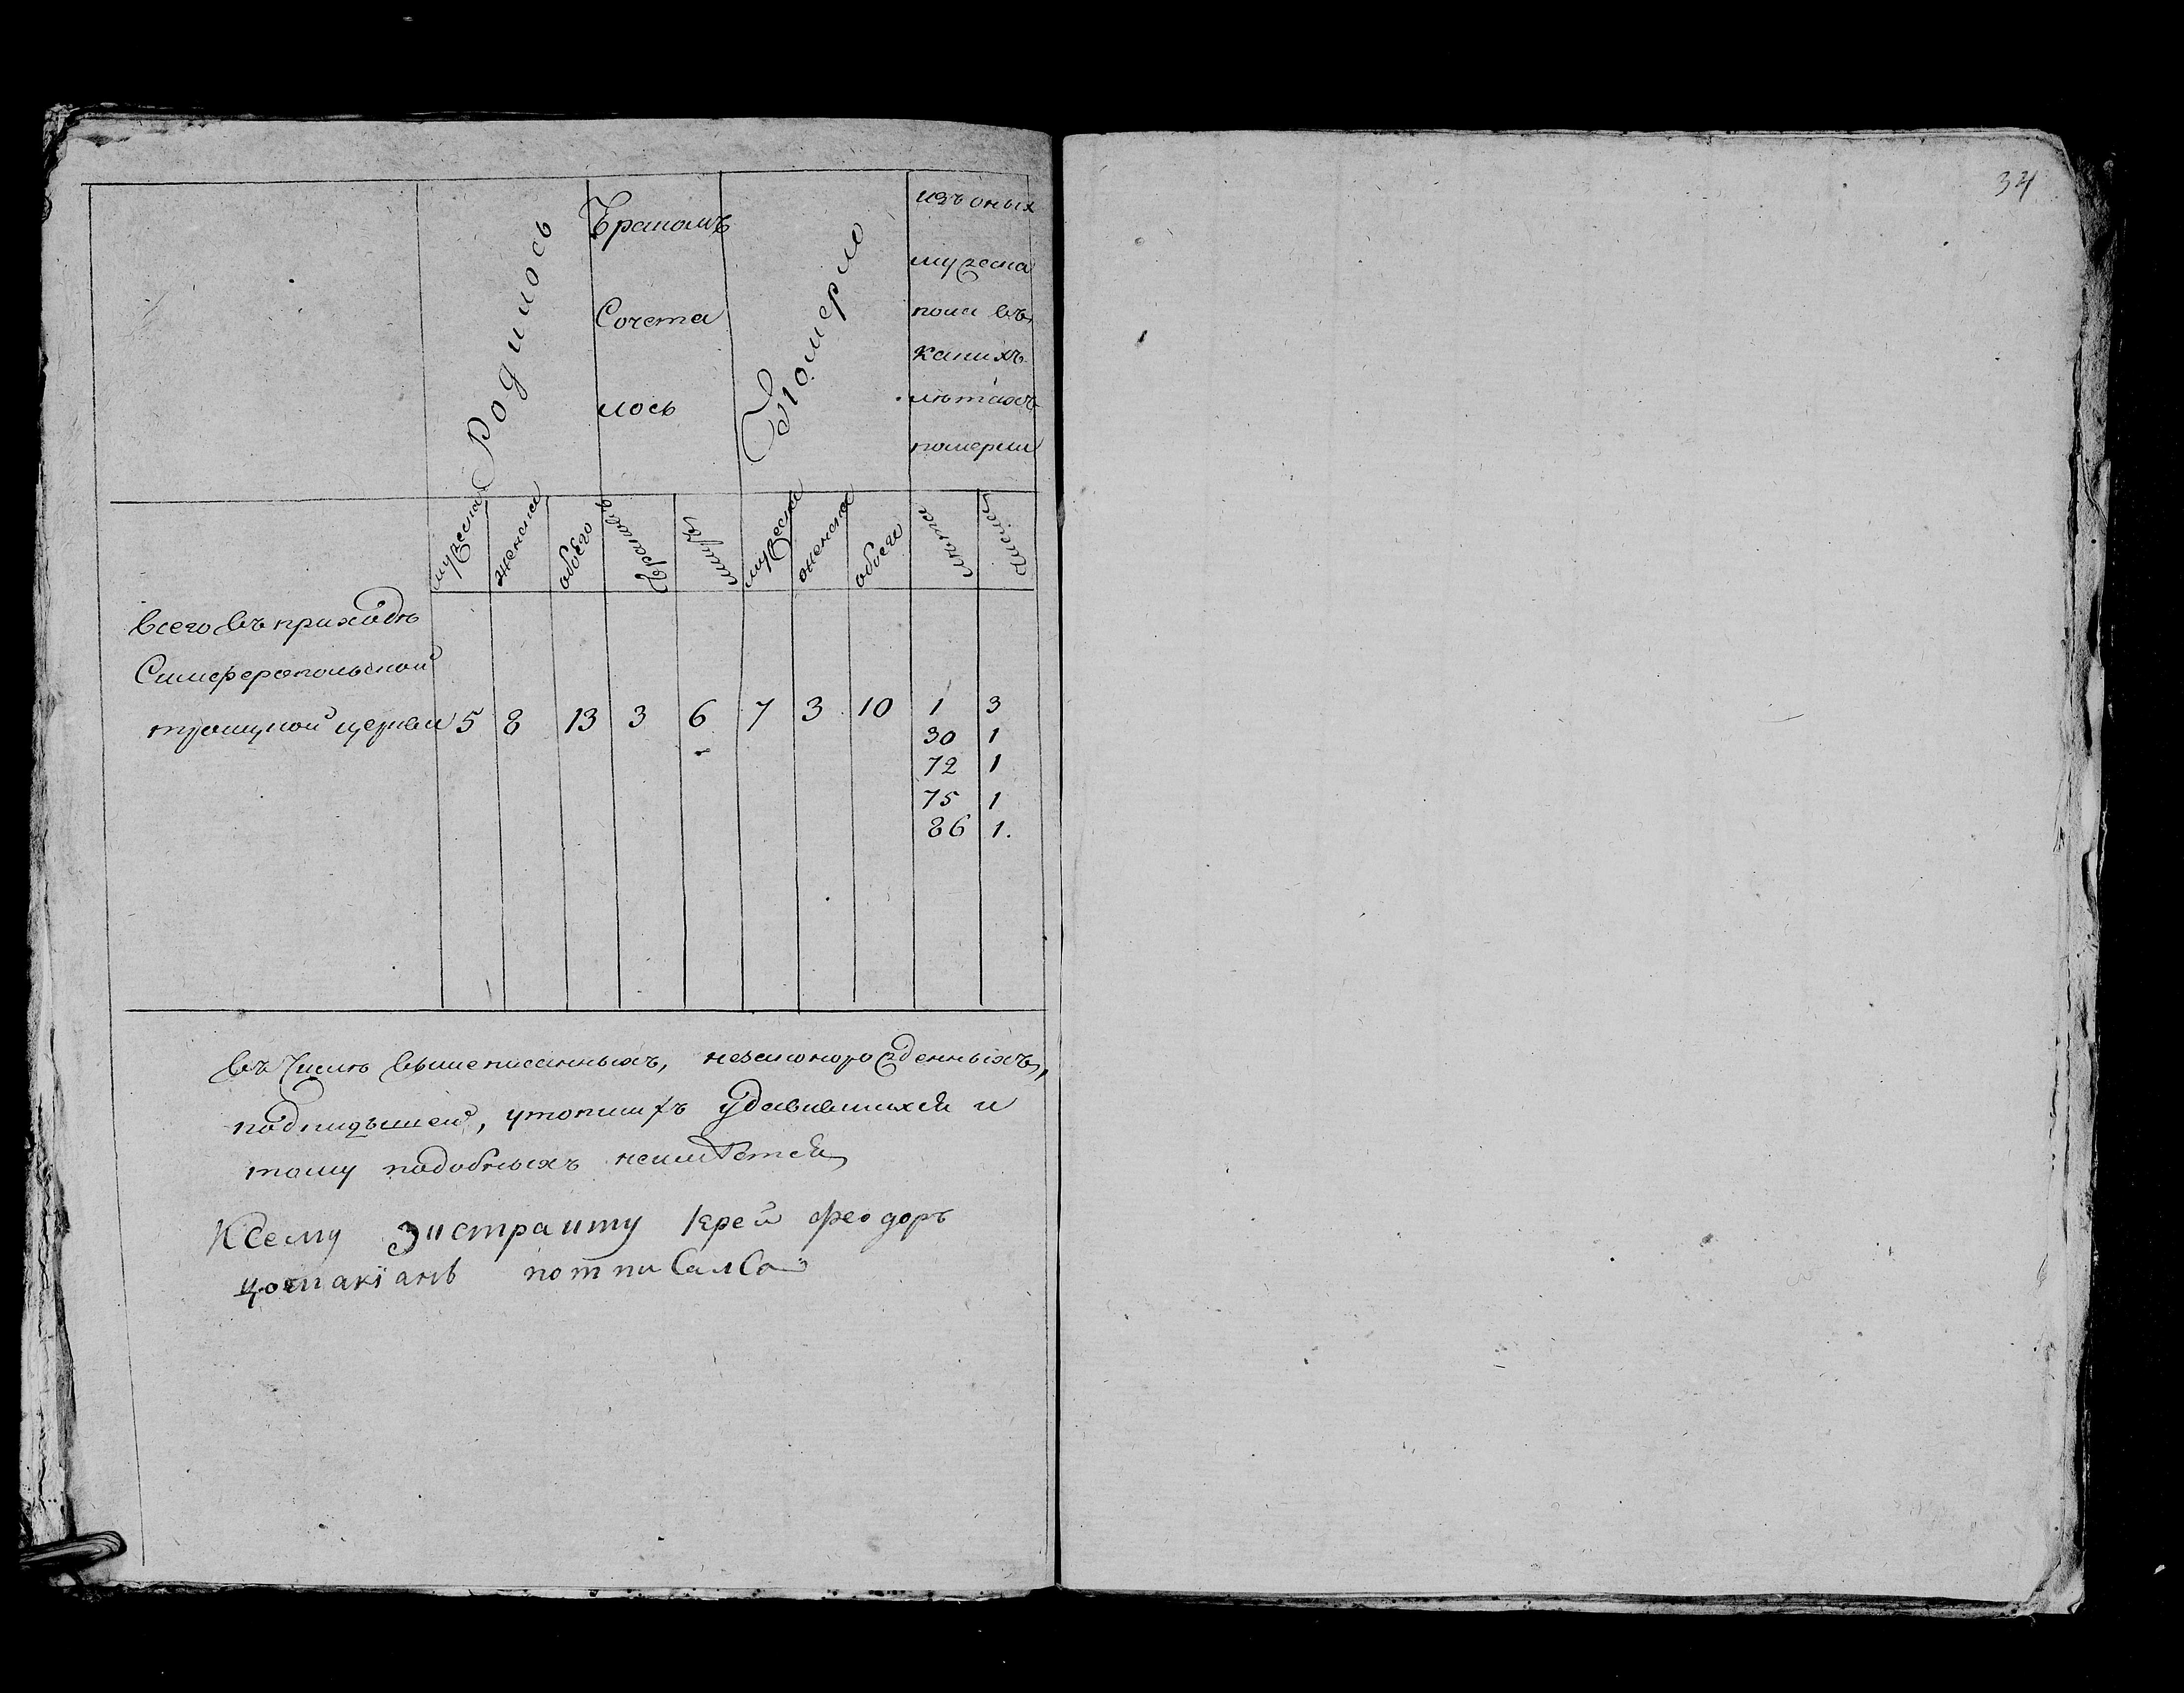 34
Родилось
Бракомъ
Сочета
лось
Померло
изъ оных
мужеска
пола въ
какихъ
лѣтахъ
померли
мужеска женска обоего браковъ мужеска женска обоего лѣта число
всего въ приходѣ
Симферопольской
троицкой церкви 5 8 13 3 6 7 3 10 1 3
30 1
72 1
75 1
86 1.
въ числѣ вышеписанныхъ, незаконорожденныхъ,
подкидышей, утопшихъ удавившихся и
тому подобныхъ неимѣется
К сему Эистракту Iерей феодоръ
потписался